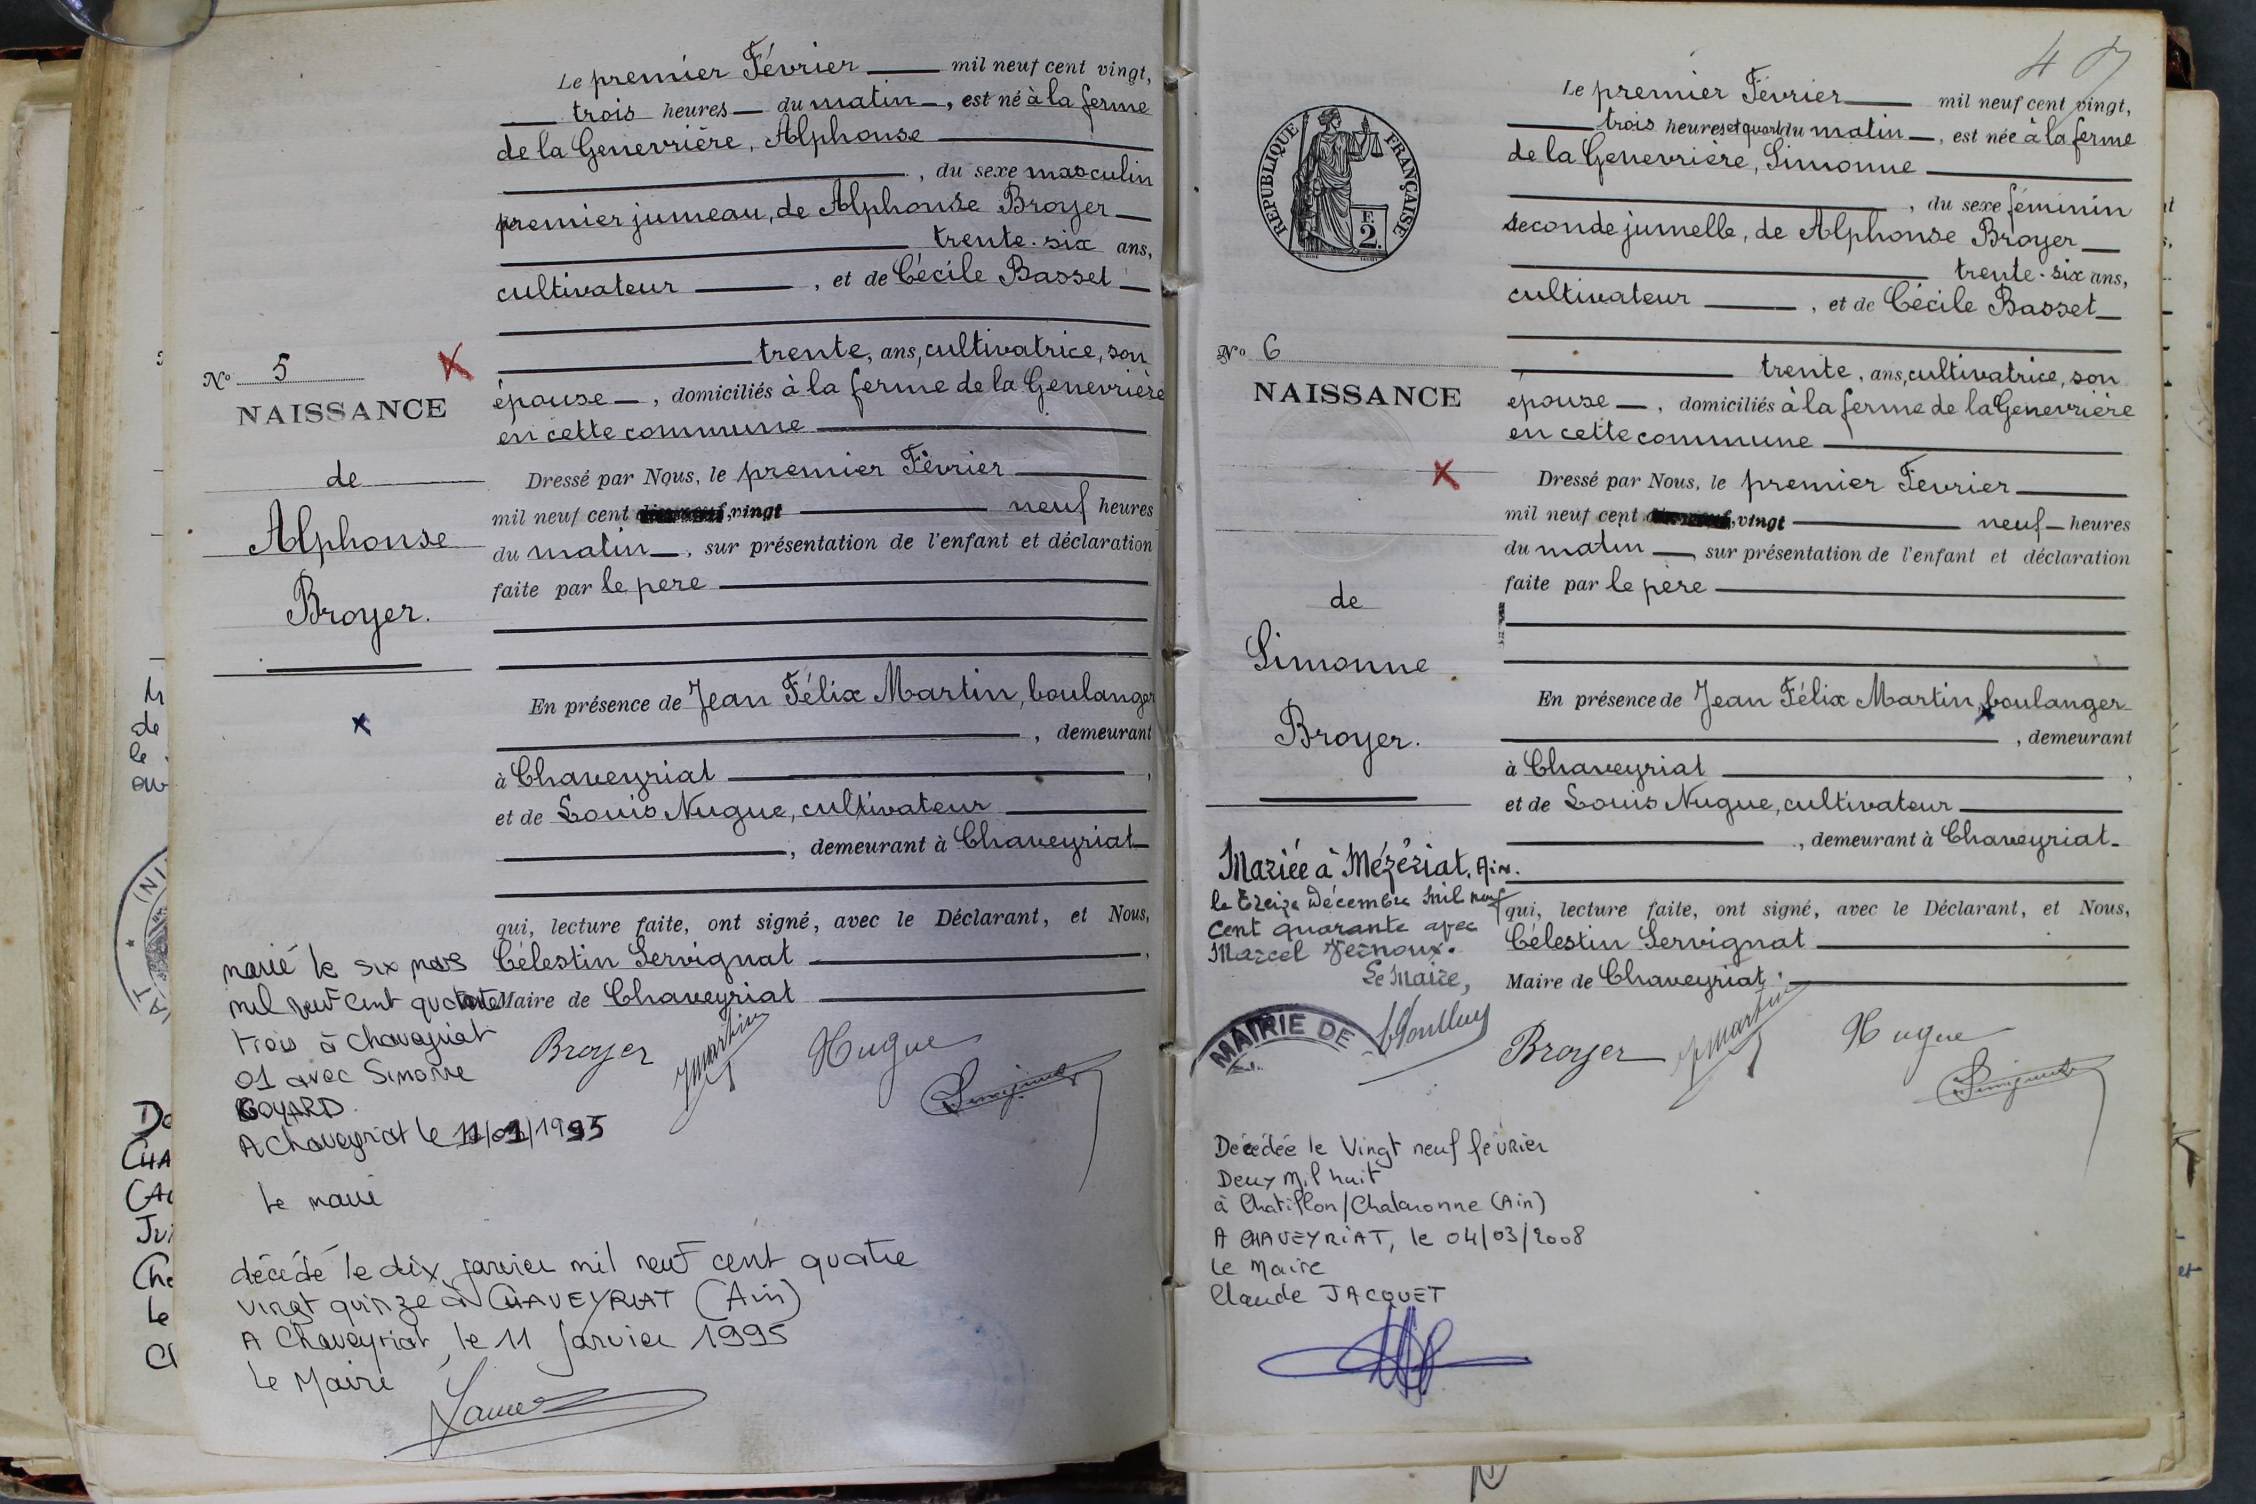 Le premier Février mil neuf cent vingt,
trois heures du matin, est né à la ferme
de la Genevrière, Alphonse
, du sexe masculin
premier jumeau, de Alphonse Broyer
trente-six ans,
cultivateur , et de Cécile Basset
trente, ans, cultivatrice, son
épouse , domiciliés à la ferme de la Genevrière
en cette commune
Dressé par Nous, le premier Février
mil neuf cent vingt neuf heures
du matin , sur présentation de l'enfant et déclaration
faite par le père
En présence de Jean Félix Martin, boulanger
, demeurant
à Chaveyriat ,
et de Louis Nugue, cultivateur
, demeurant à Chaveyriat
qui, lecture faite, ont signé, avec le Déclarant, et Nous,
Célestin Servignat ,
Maire de Chaveyriat
Broyer JMartin Nugue Servignat
No 5
NAISSANCE
de
Alphonse
Broyer.
marié le six mars
mil neuf cent quarante
trois à Chaveyriat
01 avec Simone
GOYARD
A Chaveyriat le 11/01/1995
Le maire
décédé le dix janvier mil neuf cent quatre
vingt quinze à CHAVEYRIAT (Ain)
A Chaveyriat, le 11 janvier 1995
Le Maire
RÉPUBLIQUE FRANÇAISE
F.
2.
Le premier Février mil neuf cent vingt,
trois heures et quart du matin , est née à la ferme
de la Genevrière, Simonne
, du sexe féminin
seconde jumelle, de Alphonse Broyer
trente-six ans,
cultivateur , et de Cécile Basset
trente, ans, cultivatrice, son
épouse , domiciliés à la ferme de la Genevrière
en cette commune
Dressé par Nous, le premier Février
mil neuf cent vingt neuf heures
du matin , sur présentation de l'enfant et déclaration
faite par le père
En présence de Jean Félix Martin, boulanger
, demeurant
à Chaveyriat ,
et de Louis Nugue, cultivateur
, demeurant à Chaveyriat.
qui, lecture faite, ont signé, avec le Déclarant, et Nous,
Célestin Servignat
Maire de Chaveyriat.
Broyer JMartin Nugue Servignat
No 6
NAISSANCE
de
Simonne
Broyer.
Mariée à Mézériat, Ain.
le treize Décembre mil neuf
cent quarante avec
Marcel Vernoux.
Le Maire,
MAIRIE DE
Décédée le Vingt neuf février
Deux Mil huit
à Chatillon/Chalaronne (Ain)
A CHAVEYRIAT, le 04/03/2008
Le Maire
Claude JACQUET